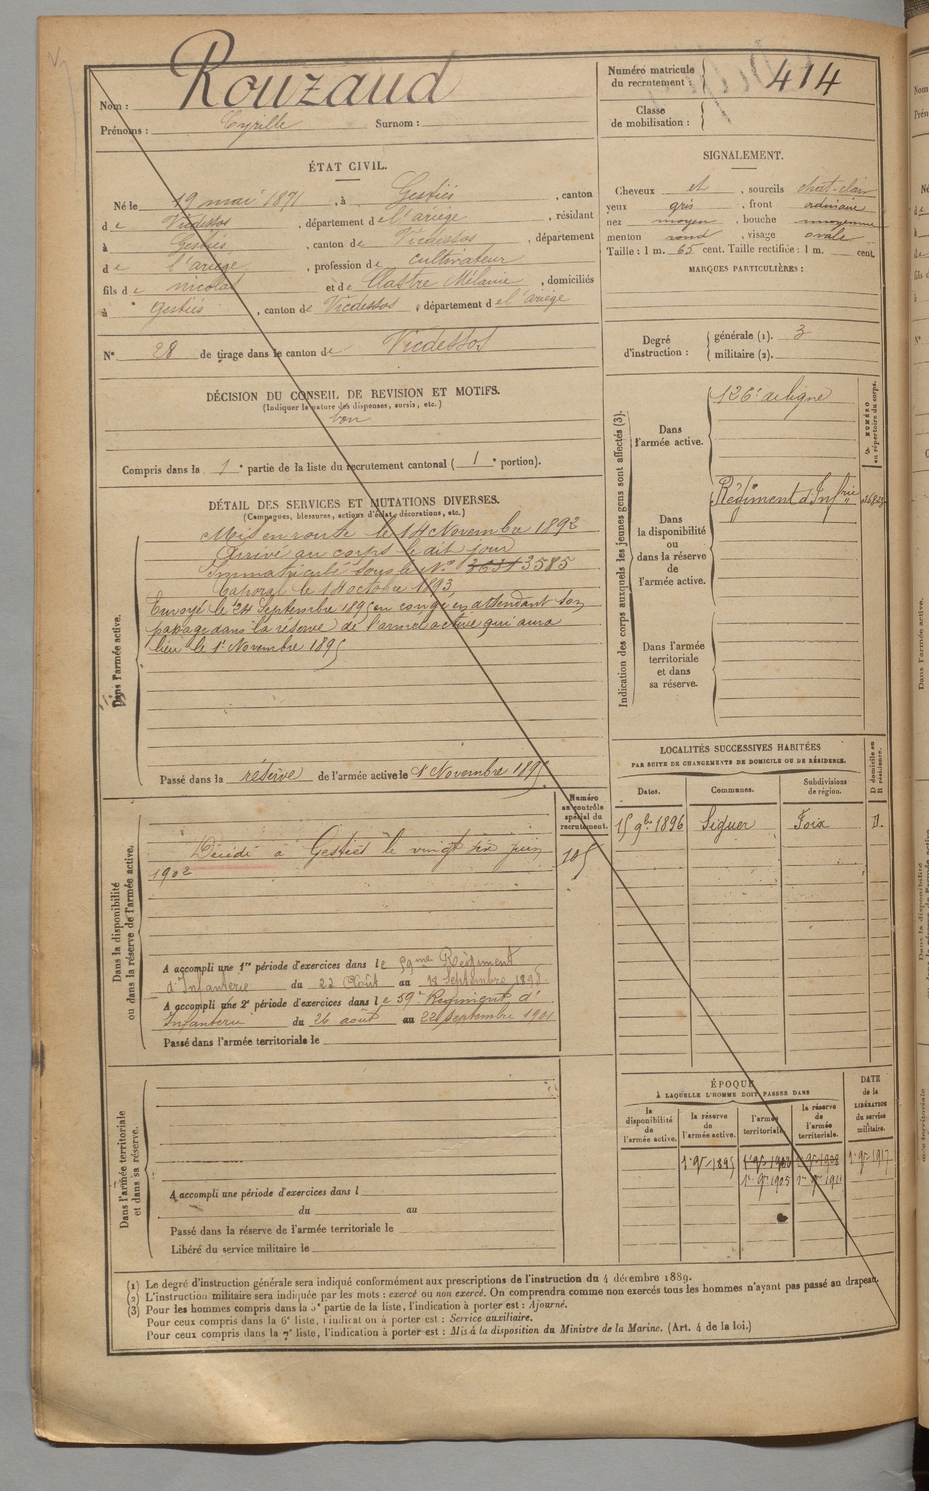 Nom : Rouzaud
Prénoms : Cyrille Surnom :
Numéro matricule du recrutement : 414
Classe de mobilisation :
ÉTAT CIVIL.
Né le 19 mai 1871, à Gestiès, canton
de Vicdessos, département de l'ariège, résidant
à Gestiès, canton de Vicdessos, département
de l'ariège, profession de cultivateur
fils de nicolas et de Clastre Mélanie, domiciliés
à Gestiès, canton de Vicdessos, département de l'ariège
N° 28 de tirage dans le canton de Vicdessos
SIGNALEMENT.
Cheveux et, sourcils chat-clair
yeux gris, front ordinaire
nez moyen, bouche moyenne
menton rond, visage ovale
Taille : 1 m. 65 cent. Taille rectifiée : 1 m. cent.
MARQUES PARTICULIÈRES :
Degré d'instruction : générale (1). 3
militaire (2).
DÉCISION DU CONSEIL DE REVISION ET MOTIFS.
(Indiquer la nature des dispenses, sursis, etc.)
bon
Compris dans la 1e partie de la liste du recrutement cantonal (1e portion).
DÉTAIL DES SERVICES ET MUTATIONS DIVERSES.
(Campagnes, blessures, actions d'éclat, décorations, etc.)
Dans l'armée active.
Mis en route le 14 Novembre 1892
Arrivé au corps le dit jour
Immatriculé sous le N° 3631 3585
Caporal le 14 octobre 1893
Envoyé le 24 Septembre 1895 en congé en attendant son
passage dans la réserve de l'armée active qui aura
lieu le 1er Novembre 1895
Passé dans la réserve de l'armée active le 1 Novembre 1895
Indication des corps auxquels les jeunes gens sont affectés (3).
NUMÉRO au répertoire du corps.
Dans l'armée active.
126e de ligne
Dans la disponibilité ou dans la réserve de l'armée active.
Régiment d'Infrie
Dans l'armée territoriale et dans sa réserve.
LOCALITÉS SUCCESSIVES HABITÉES
PAR SUITE DE CHANGEMENTS DE DOMICILE OU DE RÉSIDENCE.
Dates. Communes. Subdivisions de région. D domicile ou R résidence.
15 9bre 1896 Siguer Foix D.
Dans la disponibilité ou dans la réserve de l'armée active.
Numéro au contrôle spécial du recrutement.
105
Décédé à Gestiès le vingt six juin
1902
A accompli une 1re période d'exercices dans le 59me Régiment
d'Infanterie du 22 Août au 18 Septembre 1898
A accompli une 2e période d'exercices dans le 59e Régiment d'
Infanterie du 26 août au 22 septembre 1901
Passé dans l'armée territoriale le
Dans l'armée territoriale et dans sa réserve.
A accompli une période d'exercices dans l
du au
Passé dans la réserve de l'armée territoriale le
Libéré du service militaire le
ÉPOQUE
À LAQUELLE L'HOMME DOIT PASSER DANS
la disponibilité de l'armée active. la réserve de l'armée active. l'armée territoriale. la réserve de l'armée territoriale.
DATE de la LIBÉRATION du service militaire.
1er 9bre 1895 1er 9bre 1902 1er 9bre 1908 1er 9bre 1917
1er 9bre 1905 1er 9bre 1911
(1) Le degré d'instruction générale sera indiqué conformément aux prescriptions de l'instruction du 4 décembre 1889.
(2) L'instruction militaire sera indiquée par les mots : exercé ou non exercé. On comprendra comme non exercés tous les hommes n'ayant pas passé au drapeau.
(3) Pour les hommes compris dans la 5e partie de la liste, l'indication à porter est : Ajourné.
Pour ceux compris dans la 6e liste, l'indication à porter est : Service auxiliaire.
Pour ceux compris dans la 7e liste, l'indication à porter est : Mis à la disposition du Ministre de la Marine. (Art. 4 de la loi.)